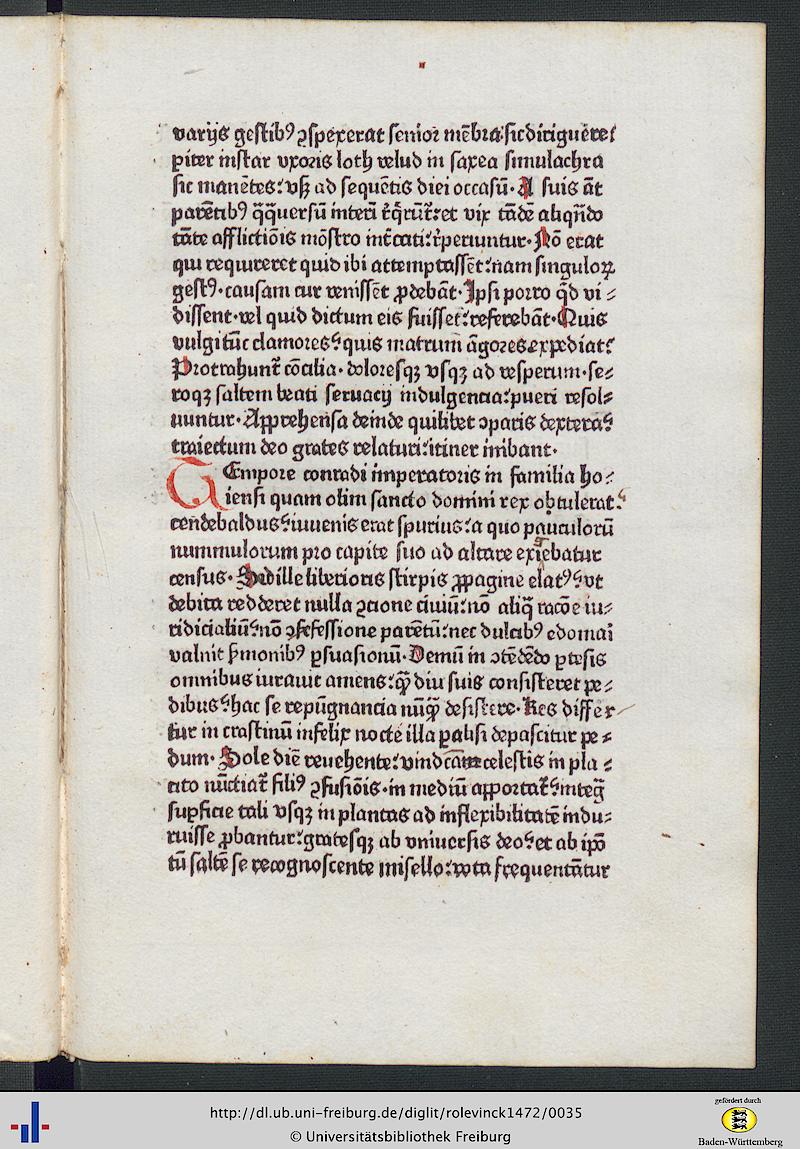 varijs gestibꝰ ꝯspexerat senior mēbra: sic diriguēre ſ
piter instar vxoris loth velud in saxea simulachra
sic manētes: vsqꝫ ad sequētis diei occasū. A suis āt
parētibꝰ et vix tādē aliqn̄do
tāte afflictiōis mōstro reperiuntur. Nō erat
qui requireret quid ibi attemptassēt: nam singuloꝝ
gestꝰ. causam cur venissēt ꝓdebāt. Ipsi porro qd̄ vi⸗
dissent. vel quid dictum eis fuisset: referebāt. Quis
vulgi tūc clamores: quis matrum āgores expediat:
Protrahunt᷑ cōcilia. doloresqꝫ vsqꝫ ad vesperum. se⸗
roqꝫ saltem beati seruacij indulgencia: pueri resol⸗
uuntur. Apprehensa deinde quilibet ꝯparis dextera:
traiectum deo grates relaturi: itiner inibant.
TEmpore conradi imperatoris in familia ho⸗
iensi quam olim sancto domini rex obtulerat:
cendebaldus: iuuenis erat spurius: a quo pauculorū
nummulorum pro capite suo ad altare exigebatur
census. Sed ille liberioris stirpis ꝓpagine elatꝰ: vt
debita redderet nulla ꝯcione ciuiū: nō aliq̄ racōe iu⸗
ridicialiū: nō ꝯfessione parētū: nec dulcibꝰ edomari
valuit ẜmonibꝰ ꝑsuasionū. Demū in ꝯtēdēdo ꝑtesis
omnibus iurauit amens: qꝙ diu suis consisteret pe⸗
dibus: hac se repūgnancia nūqꝙ desistere. Res differ
tur in crastinū infelix nocte illa ꝑalisi depascitur pe⸗
dum. Sole diē reuehente: vindcāᷓ celestis in pla⸗
cito nūctiat᷑ filiꝰ ꝯfusiōis. in mediū apportat᷑: integᷓ
suꝑficie tali vsqꝫ in plantas ad inflexibilitatē indu⸗
ruisse ꝓbantur: gratesqꝫ ab vniuersis deo: et ab ip̄o
tū saltē se recognoscente misello: vota frequentātur
http://dl.ub.uni-freiburg.de/diglit/rolevinck1472/0035
© Universitätsbibliothek Freiburg
gefördert durch
Baden-Württemberg